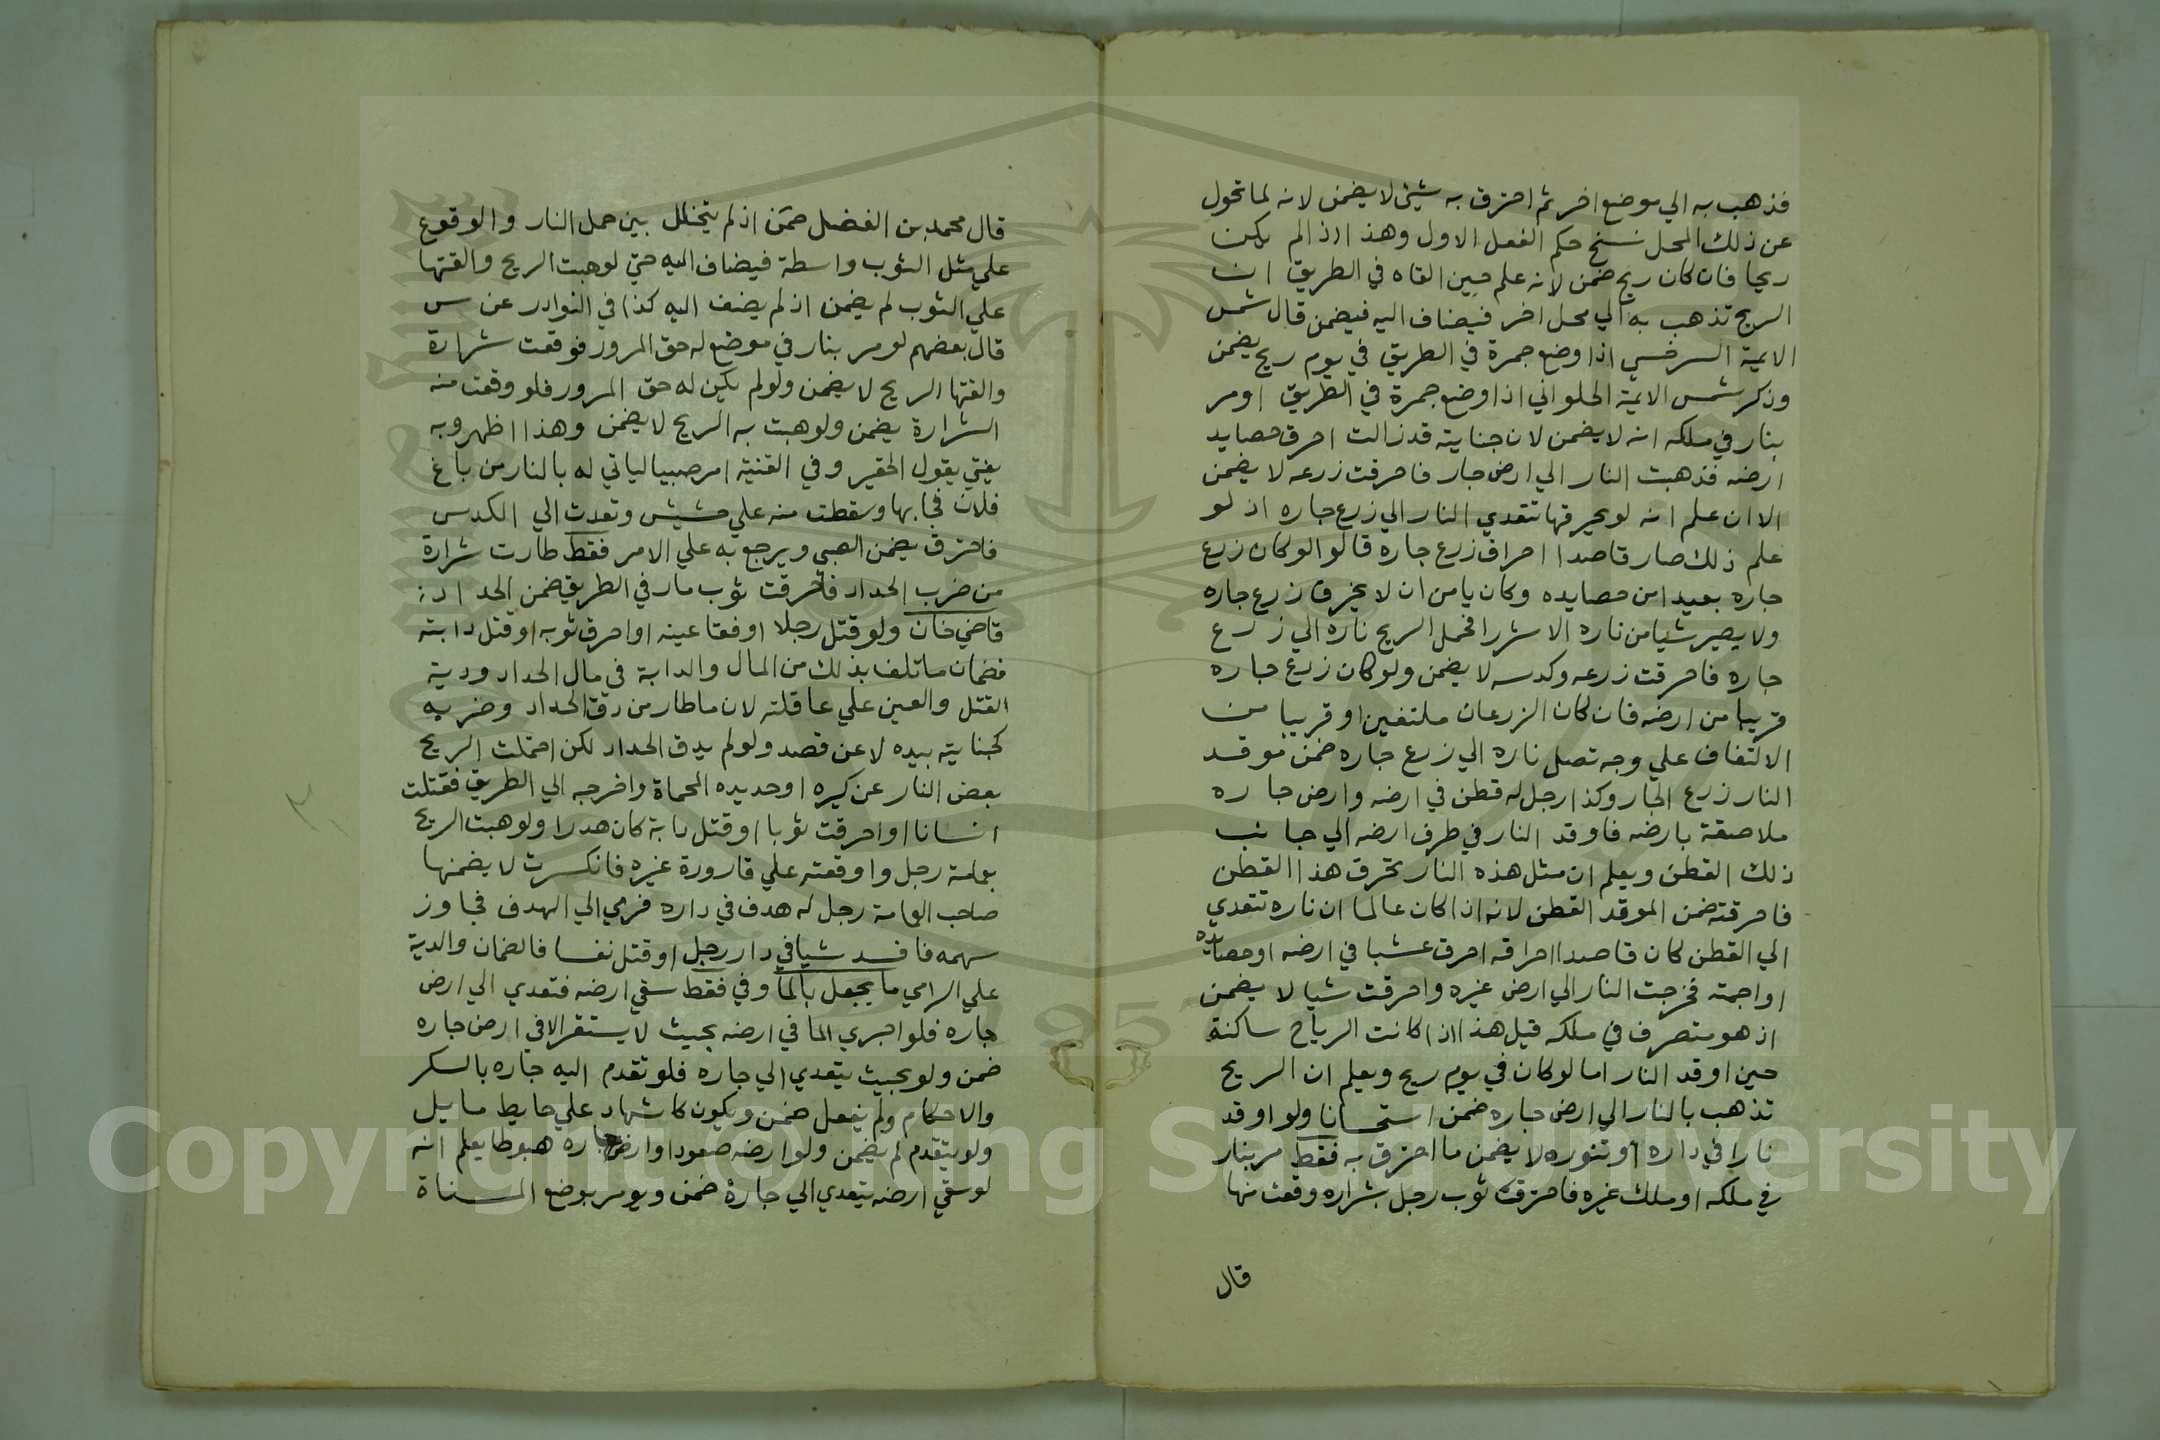 فذهب به الي موضع اخر ثم احترق به شيئ لا يضمن لانه لما تحول
عن ذلك المحل نسخ حكم الفعل الاول وهذا اذا لم يكن
ريحا فان كان ريح ضمن لانه علم حين القاه في الطريق ان
الريح تذهب به الي محل اخر فيضاف اليه فيضمن قال شمس
الايمة السرخسي اذا وضع جمرة في الطريق في يوم ريح يضمن
وذكر شمس الايمة الحلواني اذا وضع جمرة في الطريق اومر
بنار في ملكه انه لا يضمن لان جنايته قد زالت احرق حصايد
ارضه فذهبت النار الي ارض جار فاحرقت زرعه لا يضمن
الا ان علم انه لو يحرقها تتعدي النار الي زرع جاره اذ لو
علم ذلك صار قاصدا احراق زرع جاره قالوا لو كان زرع
جاره بعيدا من حصايده وكان يامن ان لا يحرق زرع جاره
ولا يصير شيا من ناره الا شررا فحمل الريح ناره الي زرع
جاره فاحرقت زرعه وكدسه لا يضمن ولو كان زرع جاره
قريبا من ارضه فان كان الزرعان ملتفين او قريبا من
الالتفاف علي وجه تصل ناره الي زرع جاره ضمن موقد
النار زرع الجار وكذا رجل له قطن في ارضه وارض جاره
ملاصقة بارضه فاوقد النار في طرف ارضه الي جانب
ذلك القطن ويعلم ان مثل هذه النار تحرق هذا القطن
فاحرقته ضمن الموقد القطن لانه اذا كان عالما ان ناره تتعدي
الي القطن كان قاصدا احراقه احرق عشبا في ارضه او حصايده
او اجمته فخرجت النار الي ارض غيره واحرقت شيا لا يضمن
اذ هو متصرف في ملكه قيل هذا اذا كانت الرياح ساكنة
حين اوقد النار اما لو كان في يوم ريح ويعلم ان الريح
تذهب بالنار الي ارض جاره ضمن استحسانا ولو اوقد
نارا في داره او تنوره لا يضمن ما احترق به فقط مر بنار
في ملكه او ملك غيره فاحترق ثوب رجل بشراره وقعت منها
قال
قال محمد بن الفضل ضمن اذ لم يتخلل بين حمل النار والوقوع
علي مثل الثوب واسطة فيضاف اليه حتي لو هبت الريح والقتها
علي الثوب لم يضمن اذ لم يضف اليه كذا في النوادر عن س
قال بعضهم لو مر بنار في موضع له حق المرور فوقعت شرارة
والقتها الريح لا يضمن ولو لم يكن له حق المرور فلو وقعت منه
الشرارة يضمن ولو هبت به الريح لا يضمن وهذا اظهر وبه
يفتي يقول الحقير وفي القنية امر صبيا لياتي له بالنار من باغ
فلان فجا بها وسقطت منه علي حشيش وتعدت الي الكدس
فاحترق يضمن الصبي ويرجع به علي الامر فقط طارت شرارة
من ضرب الحداد فاحرقت ثوب مار في الطريق ضمن الحداد
قاضي خان ولو قتل رجلا او فقا عينه او احرق ثوبه او قتل دابته
فضمان ما تلف بذلك من المال والدابة في مال الحداد ودية
القتل والعين علي عاقلته لان ما طار من دق الحداد وضربه
كجنايته بيده لا عن قصد ولو لم يدق الحداد لكن احتملت الريح
بعض النار عن كيره او حديده المحماة واخرجه الي الطريق فقتلت
انسانا او احرقت ثوبا او قتل دابة كان هدرا ولو هبت الريح
بعمامة رجل واوقعته علي قارورة غيره فانكسرت لا يضمنها
صاحب العمامة رجل له هدف في داره فرمي الي الهدف فجاوز
سهمه فافسد شيا في دار رجل او قتل نفسا فالضمان والدية
علي الرامي ما يجعل بالما وفي فقط سقي ارضه فتعدي الي ارض
جاره فلو اجري الما في ارضه بحيث لا يستقر الا في ارض جاره
ضمن ولو بحيث يتعدي الي جاره فلو تقدم اليه جاره بالسكر
والاحكام ولم يفعل ضمن ويكون كاشهاد علي حايط مايل
ولو يتقدم لم يضمن ولو ارضه صعودا وارض جاره هبوطا يعلم انه
لو سقي ارضه يتعدي الي جارة ضمن ويومر بوضع المسناة